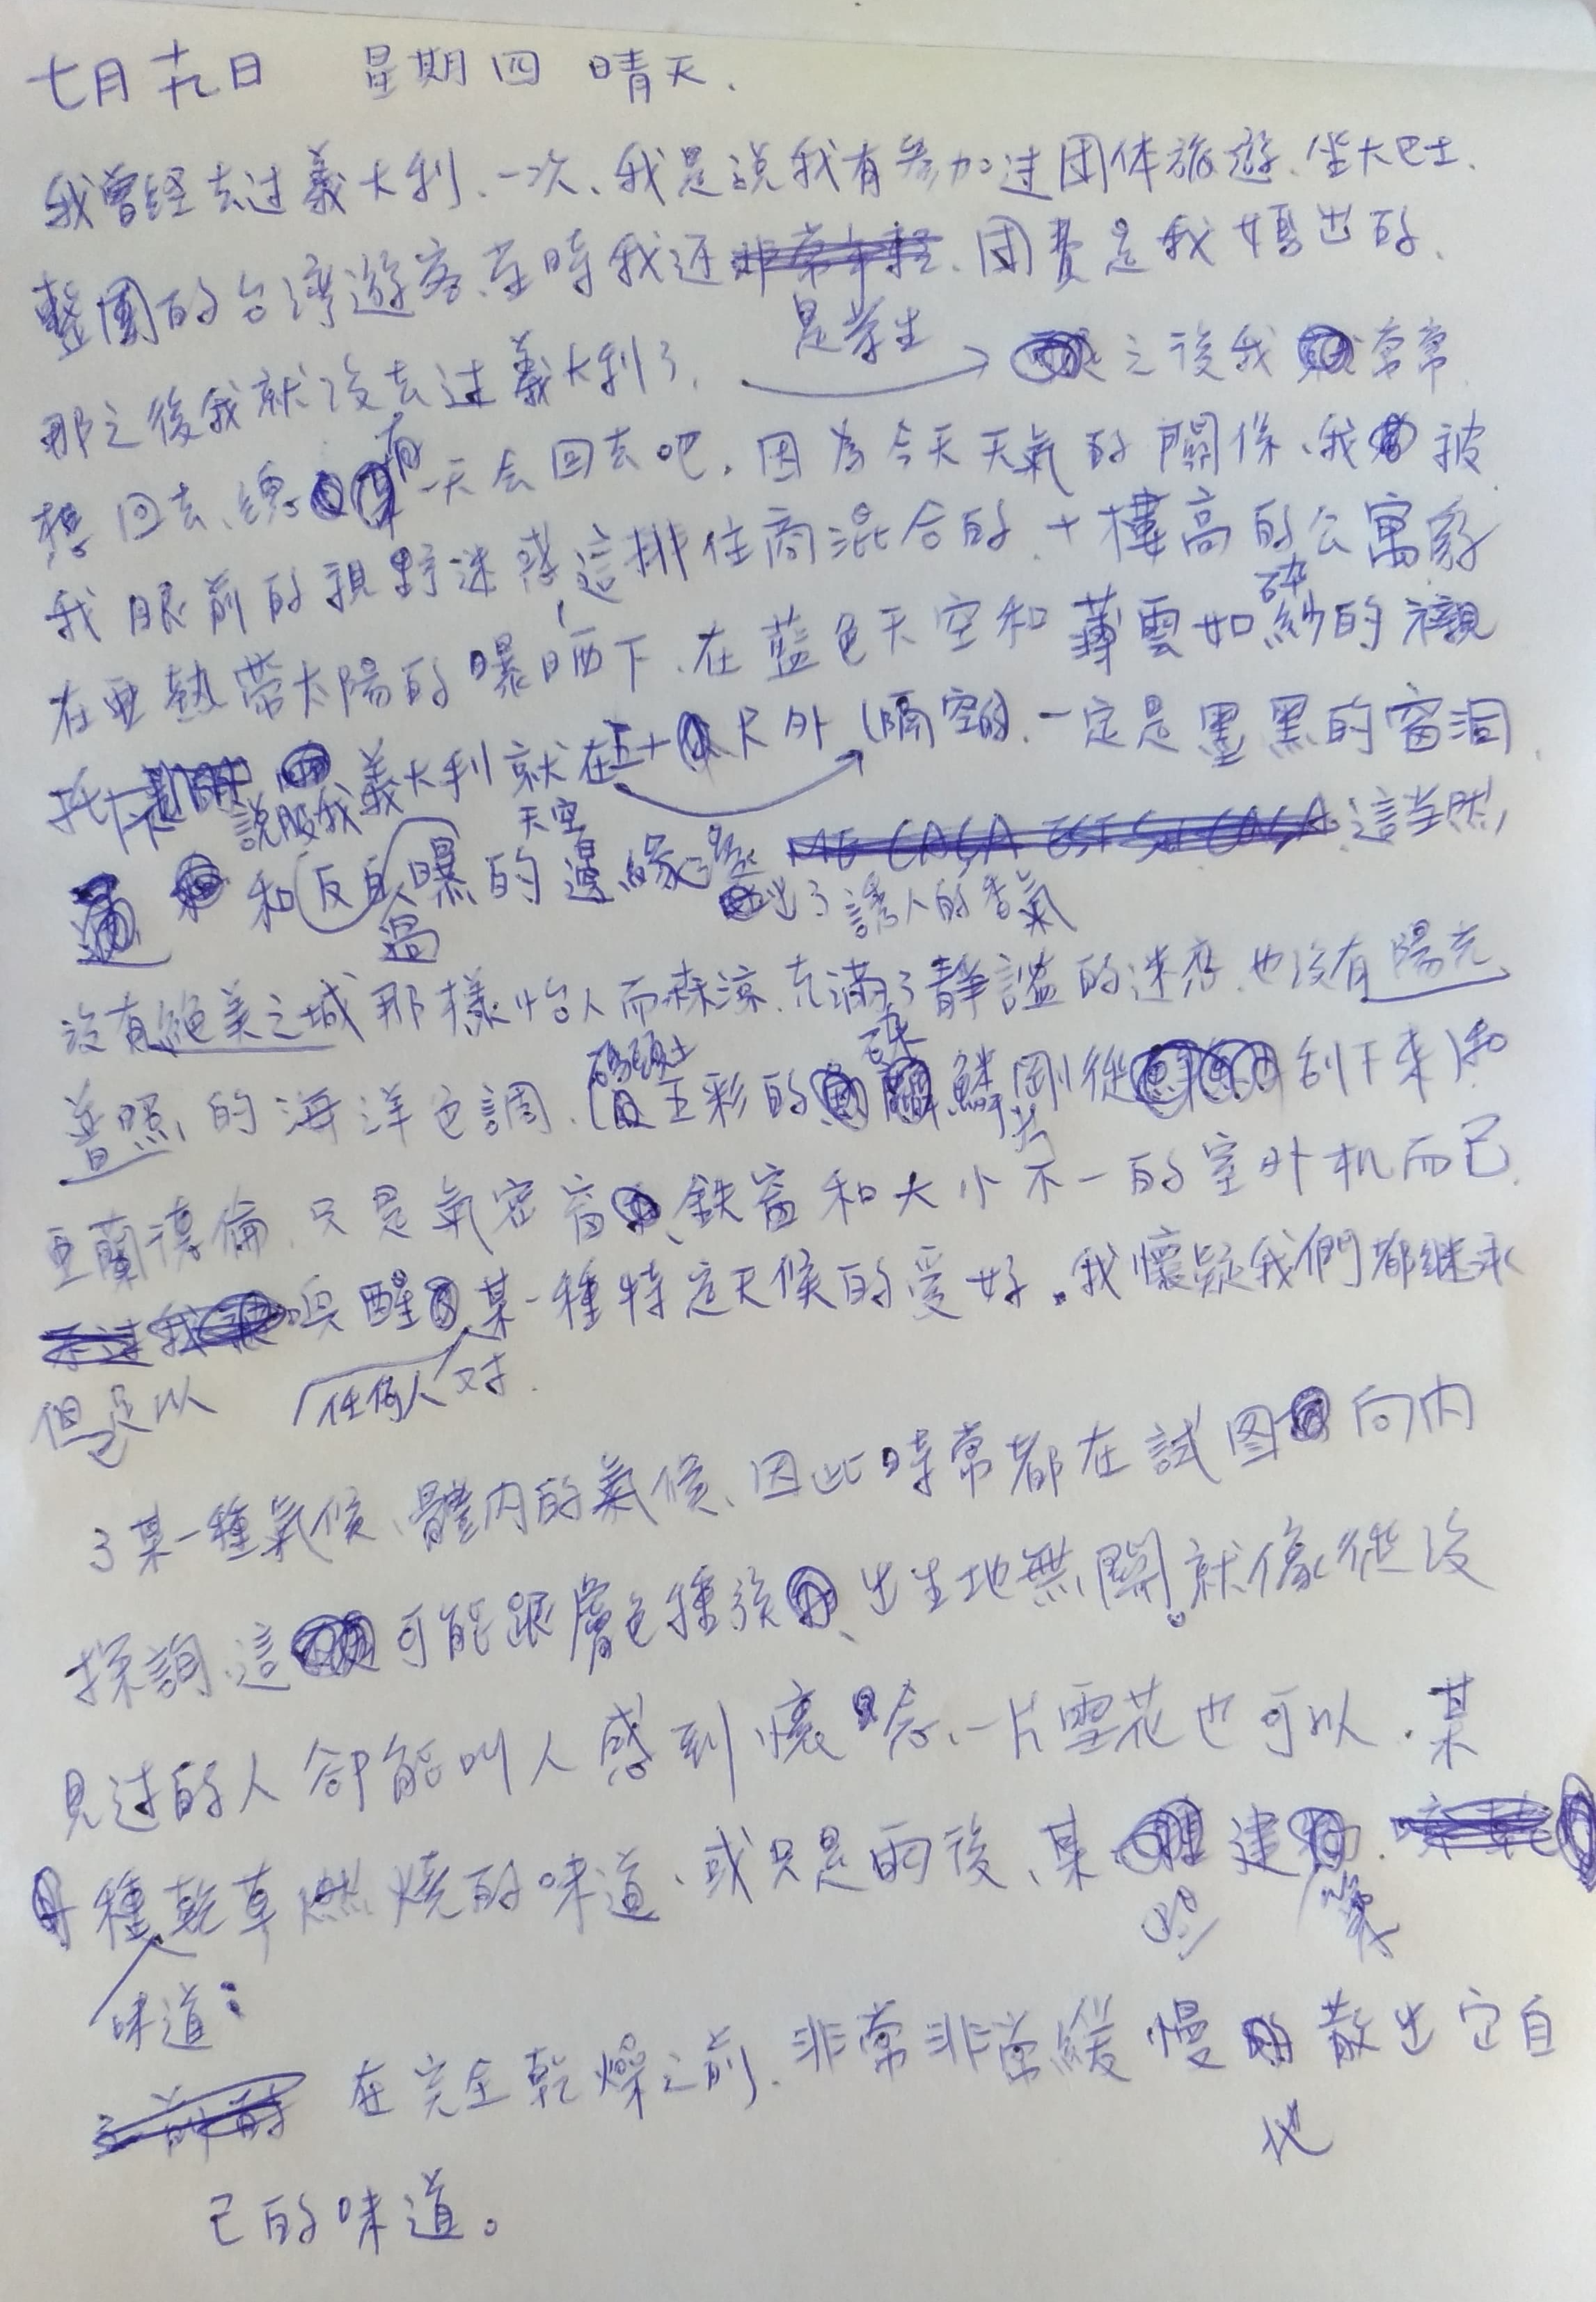 七月十九日 星期四 晴天、
我曾經去过義大利、一次、我是說我有參加过团体旅遊、坐大巴士、
整團的台灣遊客、當時我还是学生、团費是我媽出的、
那之後我就沒去过義大利了、之後我常常
想回去、總有一天会回去吧、因為今天天氣的關係、我被
我眼前的視野迷惑、這排住商混合的、十樓高的公寓
在亞熱帶太陽的曝晒下、在藍色天空和薄雲如碎紗的襯
托下 說服我義大利就在五十尺外(隔空的、一定是墨黑的窗洞、
和反白過曝的天空邊緣 出了誘人的香氣 這当然
沒有絕美之城那樣怡人而森涼、充滿了靜謐的迷霧、也沒有陽光
普照的海洋色調、(碼頭上 五彩的 鱗剛從 刮下來)和
亞蘭德倫、只是氣密窗、鉄窗和大小不一的室外机而已、
但足以喚醒任何人对某一種特定天候的愛好。我懷疑我們都継承
了某一種氣候、體內的氣候、因此時常都在試图向內
探詢、這可能跟膚色種族、出生地無關。就像從沒
見过的人卻能叫人感到懷念、一片雪花也可以、某
種味道：乾草燃燒的味道、或只是雨後、某些建築、
在完全乾燥之前、非常非常緩慢地散出它自
己的味道。